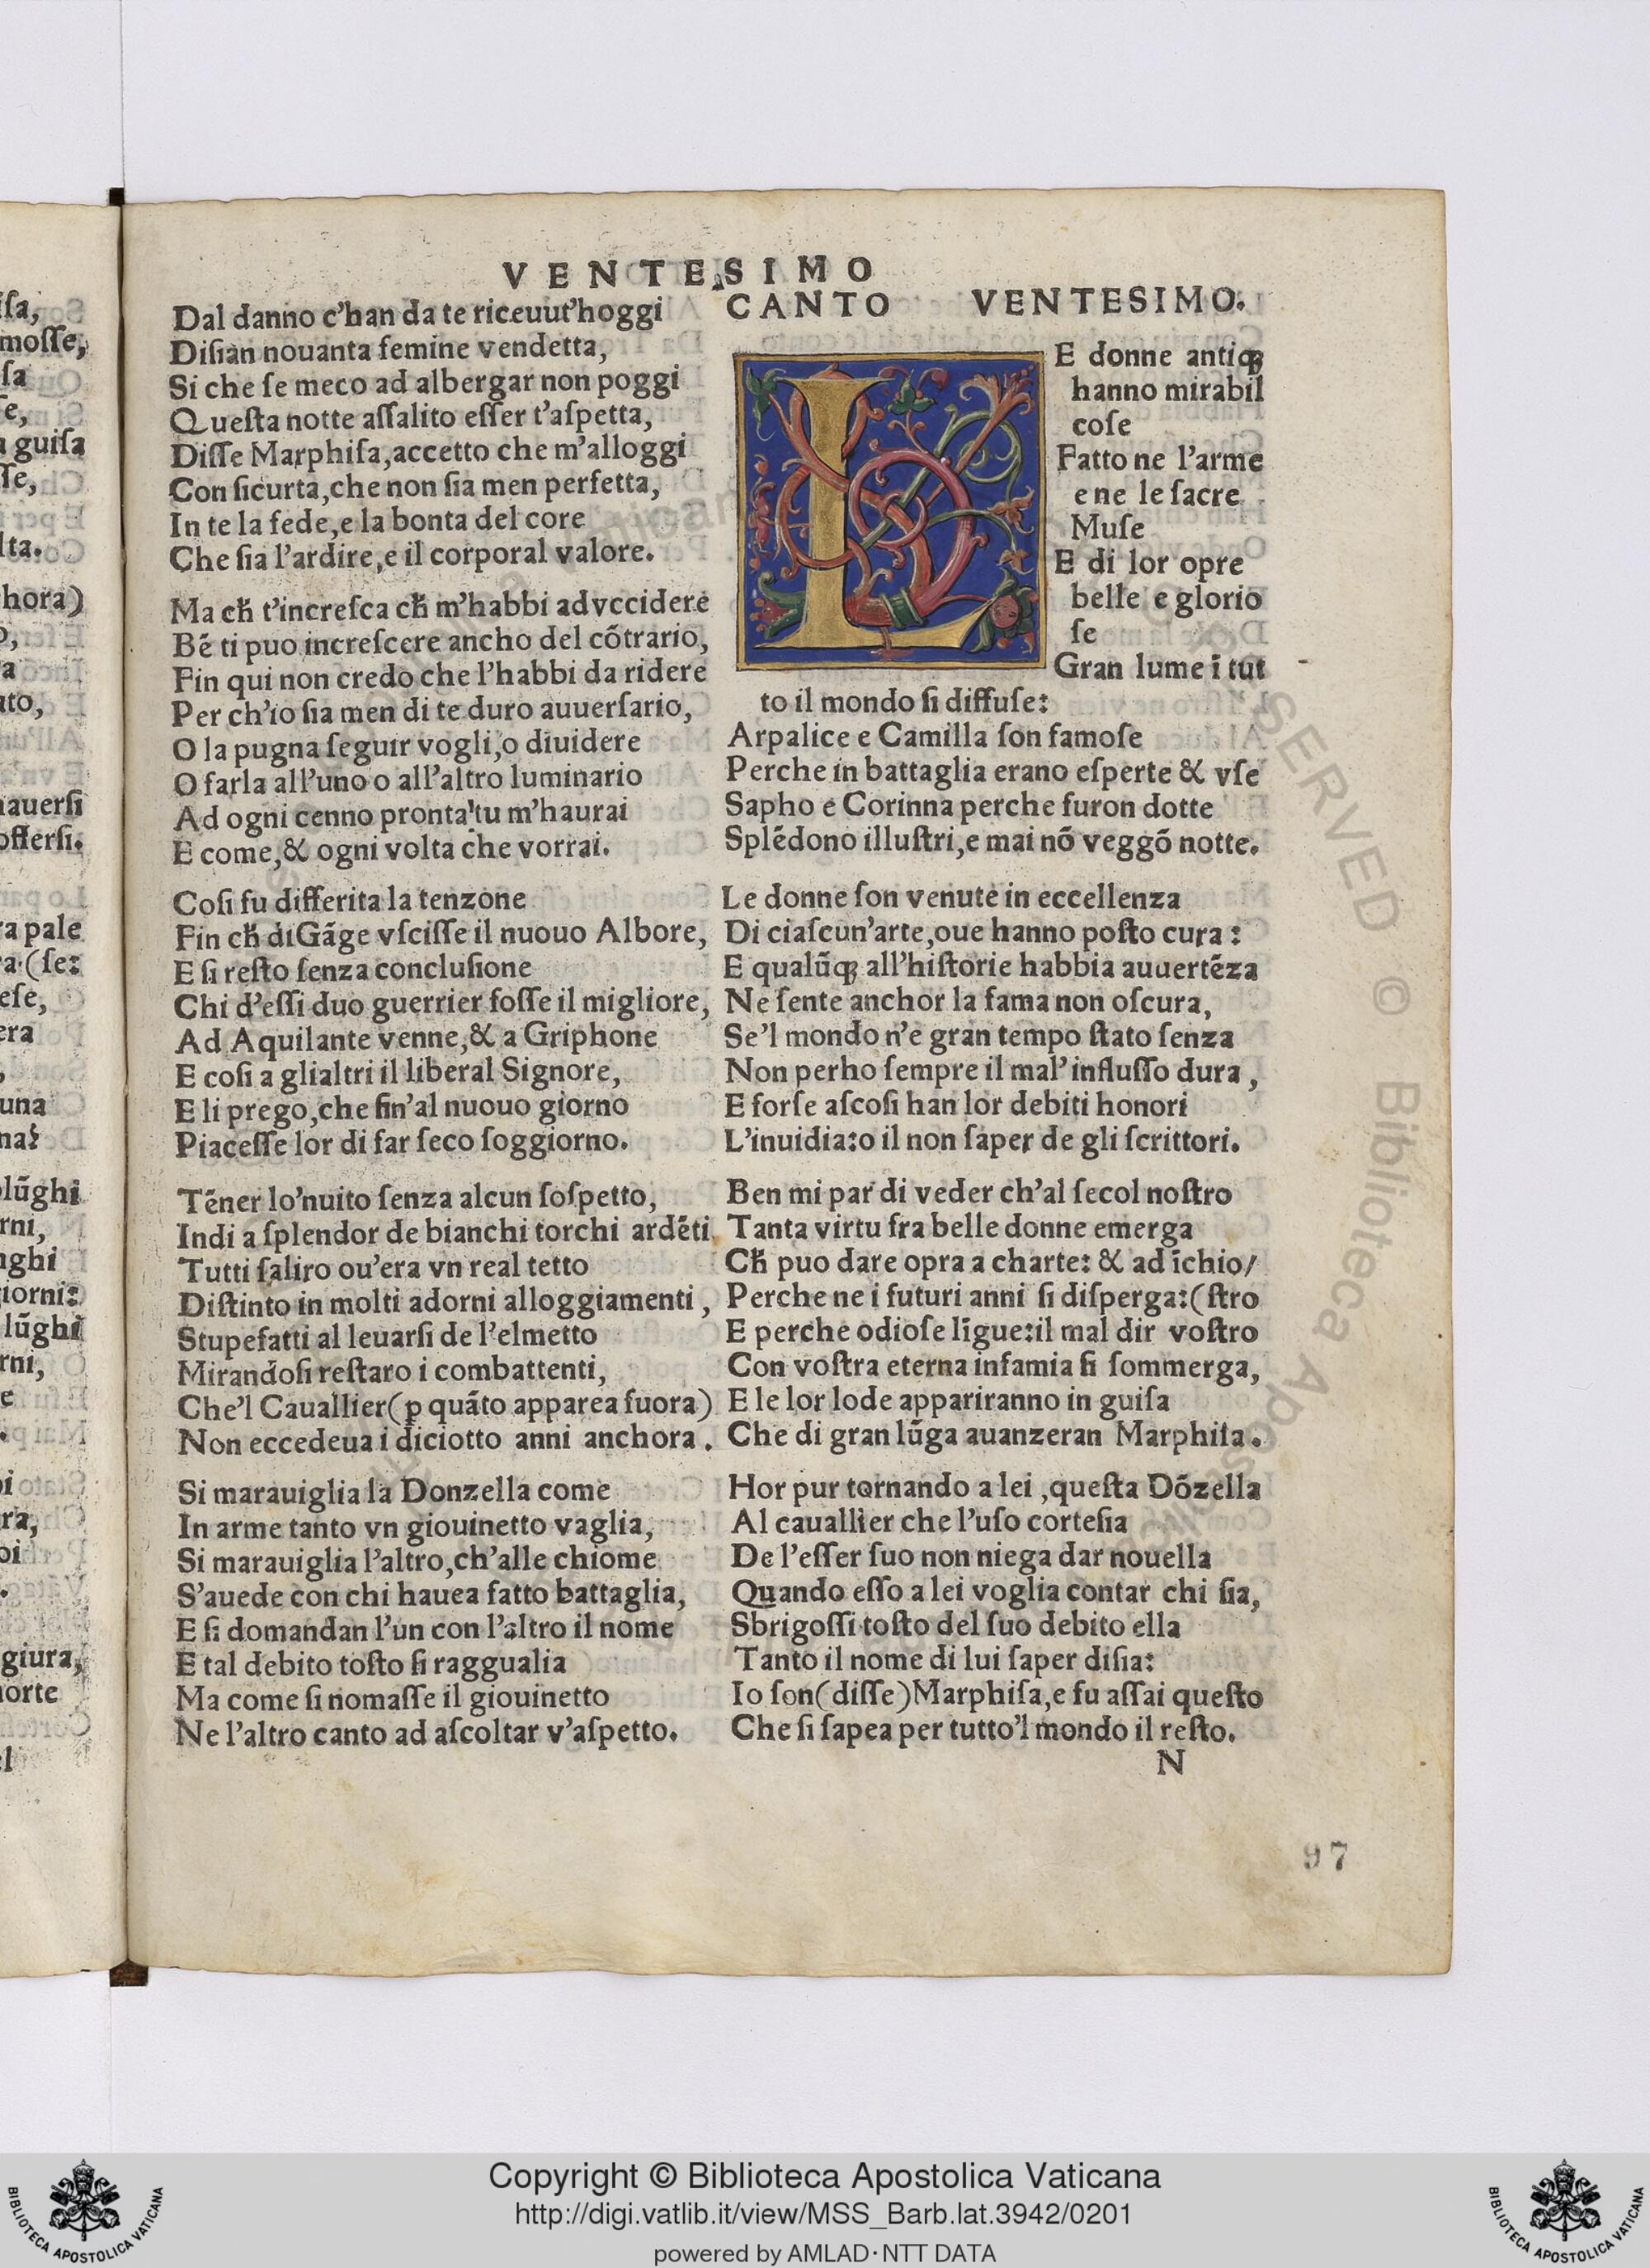 VENTESIMO
Dal danno c'han da te riceuut'hoggi
Disian nouanta femine vendetta,
Si che ſe meco ad albergar non poggi
Queſta notte aſſalito eſſer t'aſpetta,
Diſſe Marphiſa,accetto che m'alloggi
Con ſicurta,che non ſia men perfetta,
In te la fede,e la bonta del core
Che ſia l'ardire,e il corporal valore.
Ma cħ t'increſca cħ m'habbi advccidere
Bẽ ti puo increſcere ancho del cõtrario,
Fin qui non credo che l'habbi da ridere
Per ch'io ſia men di te duro auuerſario,
O la pugna ſeguir vogli,o diuidere
O farla all'uno o all'altro luminario
Ad ogni cenno pronta tu m'haurai
E come,& ogni volta che vorrai.
Coſi fu differita la tenzone
Fin cħ diGãge vſciſſe il nuouo Albore,
E ſi reſto ſenza concluſione
Chi d'eſſi duo guerrier foſſe il migliore,
Ad Aquilante venne,& a Griphone
E coſi a glialtri il liberal Signore,
E li prego,che fin'al nuouo giorno
Piaceſſe lor di far ſeco ſoggiorno.
Tẽner lo'nuito ſenza alcun ſoſpetto,
Indi a ſplendor de bianchi torchi ardẽti
Tutti ſaliro ou'era vn real tetto
Diſtinto in molti adorni alloggiamenti,
Stupefatti al leuarſi de l'elmetto
Mirandoſi reſtaro i combattenti,
Che'l Cauallier(ꝑ quãto apparea fuora)
Non eccedeua i diciotto anni anchora.
Si marauiglia la Donzella come
In arme tanto vn giouinetto vaglia,
Si marauiglia l'altro,ch'alle chiome
S'auede con chi hauea fatto battaglia,
E ſi domandan l'un con l'altro il nome
E tal debito toſto ſi raggualia
Ma come ſi nomaſſe il giouinetto
Ne l'altro canto ad aſcoltar v'aſpetto.
CANTO VENTESIMO.
LE donne antiqꝫ
hanno mirabil
coſe
Fatto ne l'arme
e ne le ſacre
Muſe
E di lor opre
belle e glorio
ſe
Gran lume ĩ tut
to il mondo ſi diffuſe:
Arpalice e Camilla ſon famoſe
Perche in battaglia erano eſperte & vſe
Sapho e Corinna perche furon dotte
Splẽdono illuſtri,e mai nõ veggõ notte.
Le donne ſon venute in eccellenza
Di ciaſcun'arte,oue hanno poſto cura:
E qualũqꝫ all'hiſtorie habbia auuertẽza
Ne ſente anchor la fama non oſcura,
Se'l mondo n'e gran tempo ſtato ſenza
Non perho ſempre il mal'influſſo dura,
E forſe aſcoſi han lor debiti honori
L'inuidia:o il non ſaper de gli ſcrittori.
Ben mi par di veder ch'al ſecol noſtro
Tanta virtu fra belle donne emerga
Cħ puo dare opra a charte: & ad ĩchio/
Perche ne i futuri anni ſi diſperga:(ſtro
E perche odioſe lĩgue:il mal dir voſtro
Con voſtra eterna infamia ſi ſommerga,
E le lor lode appariranno in guiſa
Che di gran lũga auanzeran Marphiſa.
Hor pur tornando a lei,queſta Dõzella
Al cauallier che l'uſo corteſia
De l'eſſer ſuo non niega dar nouella
Quando eſſo a lei voglia contar chi ſia,
Sbrigoſſi toſto del ſuo debito ella
Tanto il nome di lui ſaper diſia:
Io ſon(diſſe)Marphiſa,e fu aſſai queſto
Che ſi ſapea per tutto'l mondo il reſto.
N
97
Copyright © Biblioteca Apostolica Vaticana
http://digi.vatlib.it/view/MSS_Barb.lat.3942/0201
powered by AMLAD·NTT DATA
BIBLIOTECA APOSTOLICA VATICANA
BIBLIOTECA APOSTOLICA VATICANA